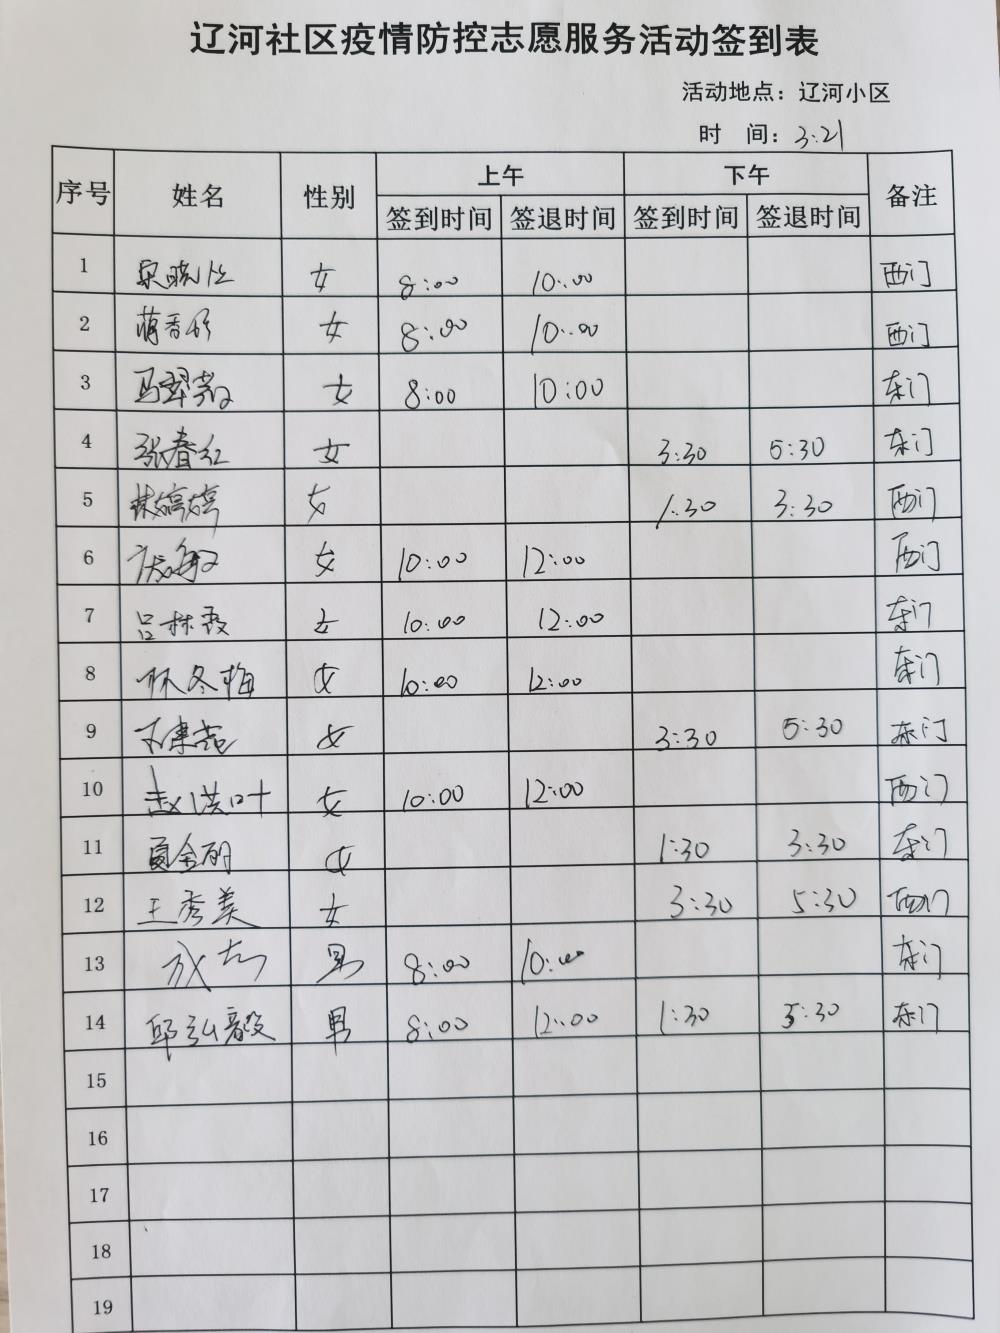 辽河社区疫情防控志愿服务活动签到表
活动地点：辽河小区
时 间：3.21
序号 姓名 性别 上午 下午 备注
签到时间 签退时间 签到时间 签退时间
1 女 8:00 10:00 西门
2 女 8:00 10:00 西门
3 马翠芳 女 8:00 10:00 东门
4 张春红 女 3:30 5:30 东门
5 林婷婷 女 1:30 3:30 西门
6 女 10:00 12:00 西门
7 吕林霞 女 10:00 12:00 东门
8 林冬梅 女 10:00 12:00 东门
9 女 3:30 5:30 东门
10 赵洪叶 女 10:00 12:00 西门
11 夏金丽 女 1:30 3:30 东门
12 王秀美 女 3:30 5:30 西门
13 男 8:00 10:00 东门
14 邱弘毅 男 8:00 12:00 1:30 5:30 东门
15
16
17
18
19